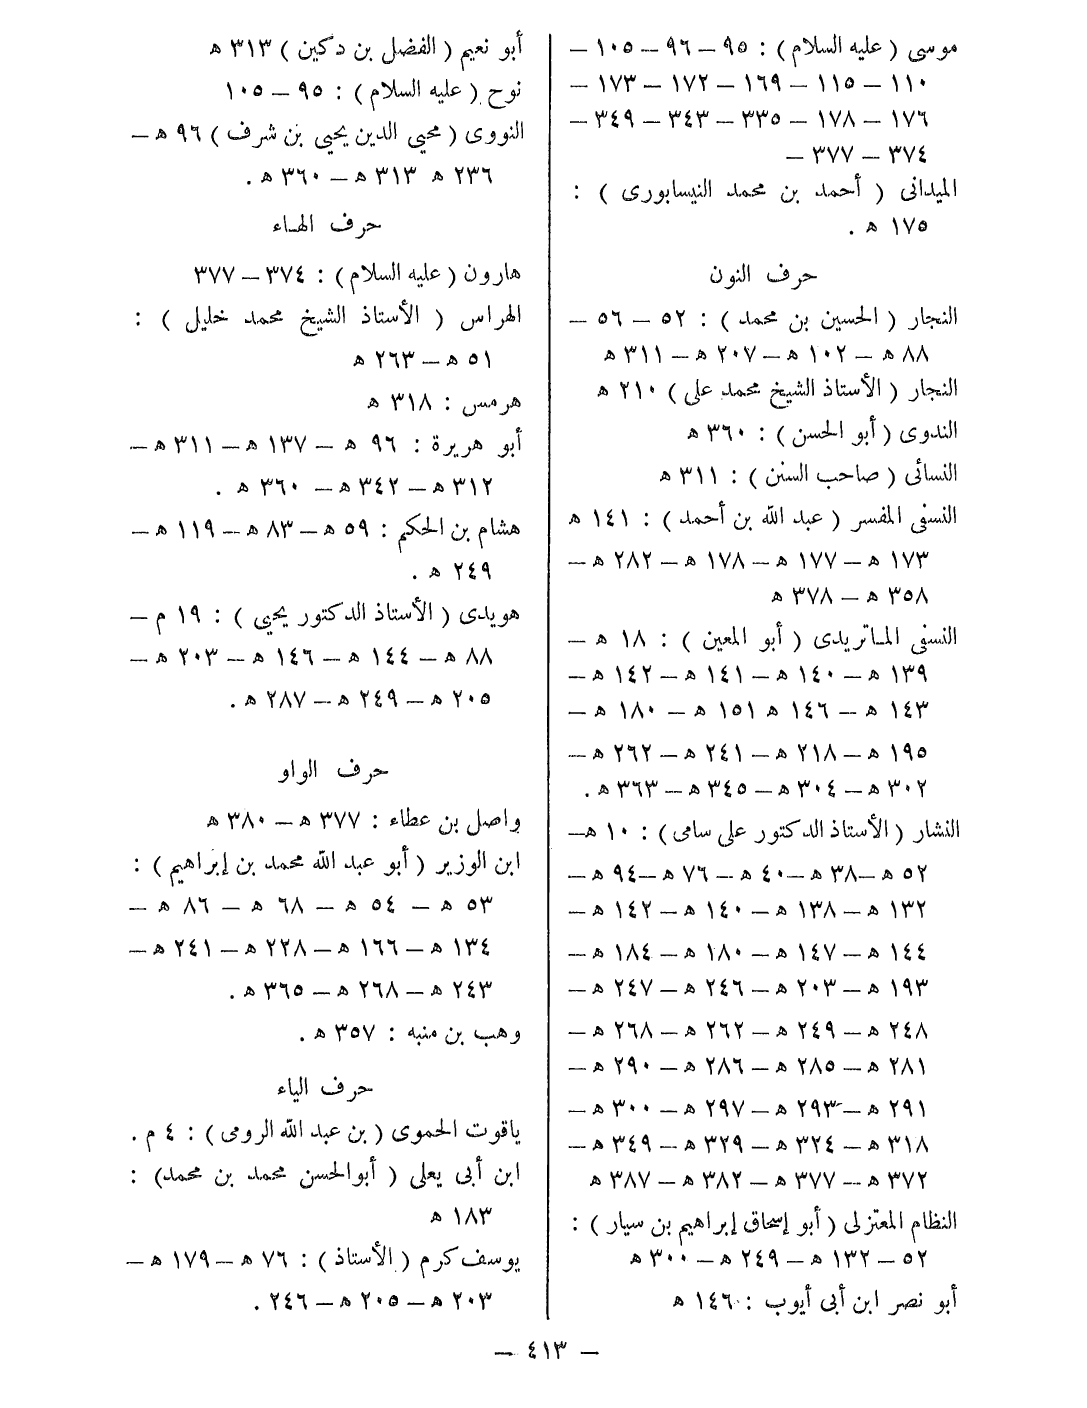 موسى ( عليه السلام ) : ٩٥ – ٩٦ – ١٠٥ –
١١٠ – ١١٥ – ١٦٩ – ١٧٢ – ١٧٣ –
١٧٦ – ١٧٨ – ٣٣٥ – ٣٤٣ – ٣٤٩ –
٣٧٤ – ٣٧٧ –
الميدانى ( أحمد بن محمد النيسابورى ) :
١٧٥ ه .
حرف النون
النجار ( الحسين بن محمد ) : ٥٢ – ٥٦ –
٨٨ ه – ١٠٢ ه – ٢٠٧ ه – ٣١١ ه
النجار ( الأستاذ الشيخ محمد على ) ٢١٠ ه
الندوى ( أبو الحسن ) : ٣٦٠ ه
النسائى ( صاحب السنن ) : ٣١١ ه
النسفى المفسر ( عبد الله بن أحمد ) : ١٤١ ه
١٧٣ ه – ١٧٧ ه – ١٧٨ ه – ٢٨٢ ه –
٣٥٨ ه – ٣٧٨ ه
النسفى الماتريدى ( أبو المعين ) : ١٨ ه –
١٣٩ ه – ١٤٠ ه – ١٤١ ه – ١٤٢ ه –
١٤٣ ه – ١٤٦ ه ١٥١ ه – ١٨٠ ه –
١٩٥ ه – ٢١٨ ه – ٢٤١ ه – ٢٦٢ ه –
٣٠٢ ه – ٣٠٤ ه – ٣٤٥ ه – ٣٦٣ ه .
النشار ( الأستاذ الدكتور على سامى ) : ١٠ ه –
٥٢ ه – ٣٨ ه – ٤٠ ه – ٧٦ ه – ٩٤ ه –
١٣٢ ه – ١٣٨ ه – ١٤٠ ه – ١٤٢ ه –
١٤٤ ه – ١٤٧ ه – ١٨٠ ه – ١٨٤ ه –
١٩٣ ه – ٢٠٣ ه – ٢٤٦ ه – ٢٤٧ ه –
٢٤٨ ه – ٢٤٩ ه – ٢٦٢ ه – ٢٦٨ ه –
٢٨١ ه – ٢٨٥ ه – ٢٨٦ ه – ٢٩٠ ه –
٢٩١ ه – ٢٩٣ ه – ٢٩٧ ه – ٣٠٠ ه –
٣١٨ ه – ٣٢٤ ه – ٣٢٩ ه – ٣٤٩ ه –
٣٧٢ ه – ٣٧٧ ه – ٣٨٢ ه – ٣٨٧ ه
النظام المعتزلى ( أبو إسحاق إبراهيم بن سيار ) :
٥٢ – ١٣٢ ه – ٢٤٩ ه – ٣٠٠ ه
أبو نصر ابن أبى أيوب : ١٤٦ ه
أبو نعيم ( الفضل بن دكين ) ٣١٣ ه
نوح ( عليه السلام ) : ٩٥ – ١٠٥
النووى ( محيي الدين يحيى بن شرف ) ٩٦ ه –
٢٣٦ ه ٣١٣ ه – ٣٦٠ ه .
حرف الهاء
هارون ( عليه السلام ) : ٣٧٤ – ٣٧٧
الهراس ( الأستاذ الشيخ محمد خليل ) :
٥١ ه – ٢٦٣ ه
هرمس : ٣١٨ ه
أبو هريرة : ٩٦ ه – ١٣٧ ه – ٣١١ ه –
٣١٢ ه – ٣٤٢ ه – ٣٦٠ ه .
هشام بن الحكم : ٥٩ ه – ٨٣ ه – ١١٩ ه –
٢٤٩ ه .
هويدى ( الأستاذ الدكتور يحيي ) : ١٩ م –
٨٨ ه – ١٤٤ ه – ١٤٦ ه – ٢٠٣ ه –
٢٠٥ ه – ٢٤٩ ه – ٢٨٧ ه .
حرف الواو
واصل بن عطاء : ٣٧٧ ه – ٣٨٠ ه
ابن الوزير ( أبو عبد الله محمد بن إبراهيم ) :
٥٣ ه – ٥٤ ه – ٦٨ ه – ٨٦ ه –
١٣٤ ه – ١٦٦ ه – ٢٢٨ ه – ٢٤١ ه –
٢٤٣ ه – ٢٦٨ ه – ٣٦٥ ه .
وهب بن منبه : ٣٥٧ ه .
حرف الياء
ياقوت الحموى ( بن عبد الله الرومى ) : ٤ م .
ابن أبى يعلى ( أبوالحسن محمد بن محمد) :
١٨٣ ه
يوسف كرم ( الأستاذ ) : ٧٦ ه – ١٧٩ ه –
٢٠٣ ه – ٢٠٥ ه – ٢٤٦ .
– ٤١٣ –